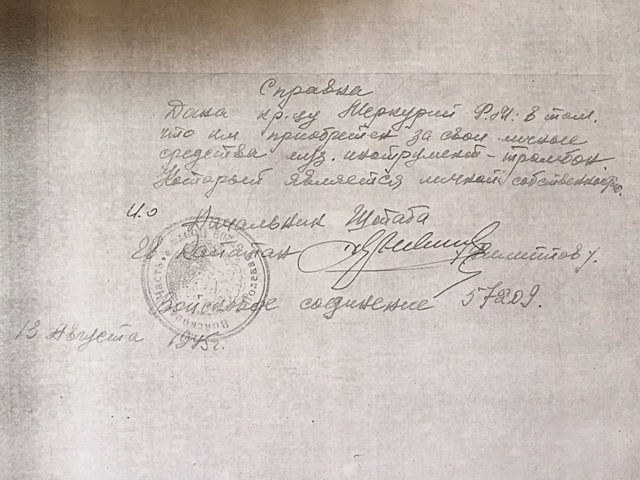 Справка
Дана кр-цу Меркурий Ф.И. в том.
что им приобретен за свои личные
средства муз. инструмент - тромбон
Который является личной собственностью.
и.о Начальник Штаба
Гв капитан Филиппов
Войсковое соединение 57209.
13 Августа 1945г.